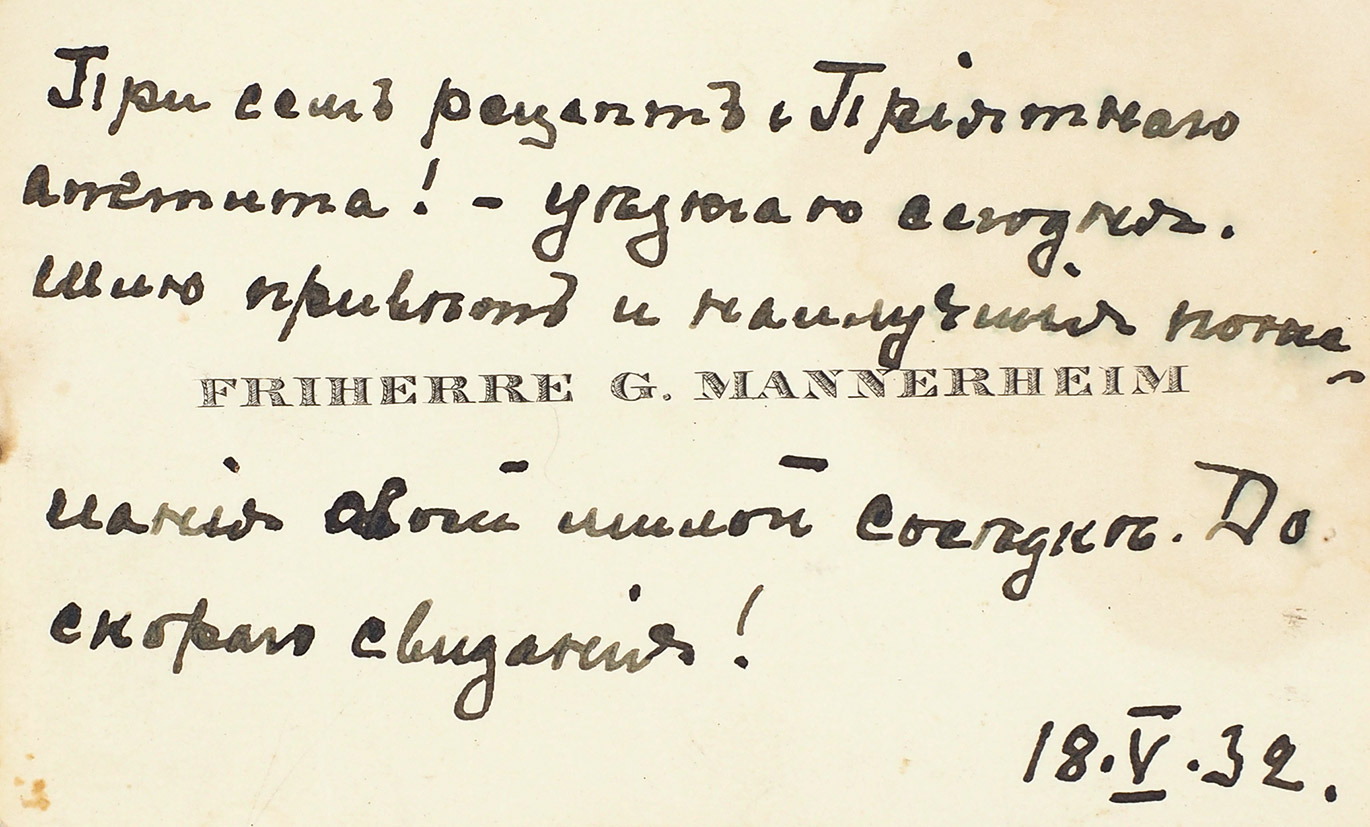 При семъ рецептъ, Прiятнаго
аппетита! - уѣзжаю сегодня.
Шлю привѣтъ и наилучшiя поже-
FRIHERRE G. MANNERHEIM
ланiя своей милой сосѣдкѣ. До
скораго свиданiя!
18.V.32.